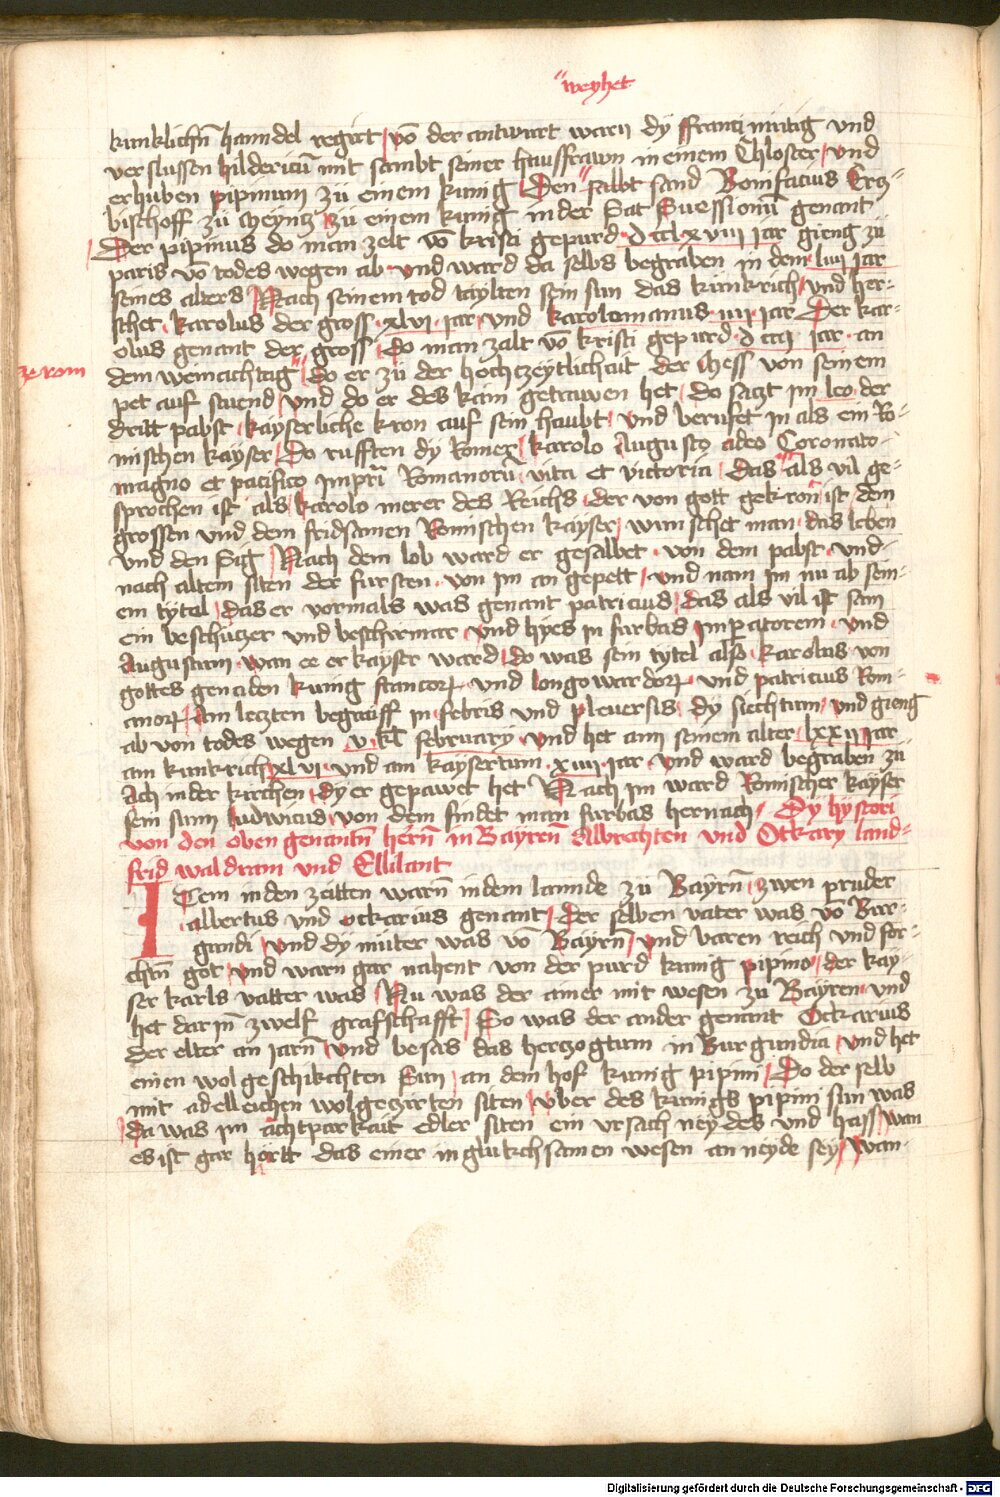 "weyhet
kuniklichñ hanndel regirt / võ der antwurt warn dy ffranci mutig und
verslussen hildericũ mit sambt seiner hausfrawn in einem Chloster / und
erhuben pipinum zü einem kunig / Den "salbt sand Bonifacius Ercz=
bischoff zü Meyntz zu einem kunig in der Stat Suessionũ genant
Der pipinus do man zelt võ kristi gepurd · dcclxviii jar gieng zü
paris võ todes wegen ab · und ward da selbs begraben in dem · liiii jar
seines alters Nach seinem tod taylten sein sun das kunkrich / und her=
schet · karolus der gross · xlvi · jar / und karolomanus · iiii · jar Der kar=
olus genant der gross / Do man zalt võ kristi gepurd · dccci jar · an
ze rom
dem weinachtag " do er zü der hochczeytlichait der Mess von seinem
pet auf stuend / und do er des kain getrawen het / do saczt im leo · der
dritt pabst · kayserliche kron auf sein haubt / und beruefet in als ein Ro=
mischen kayser / Do rufften dy Romer / karolo Augusto a deo Coronato
magno et pacifico impri Romanorũ · vita et victoria / das als vil ge=
sprochen ist als / karolo merer des Reichs · der von gott gekron ist dem
grossen und dem fridsamen Romischen kayser / wunschet man · das leben
und den Sig / Nach dem lob ward er gesalbet · von dem pabst · und
nach altem siten der fursten · von im an gepett / und nam im nu ab sein=
em tytel / das er vormals was genant patricius / das als vil ist sam
ein beschuczer und beschirmar · und hyes in furbas imperatorem · und
Augustum · wan ee er kayser ward / do was sein tytel also · karolus von
gottes genaden kunig francorum · und longowardorum · und patricius Rom=
anorum · Am leczten begraiff in febris und pleuresis · dy siechtum / und gieng
ab von todes wegen · v · kl february · und het ann seinem alter · lxxii jar
am kunkrich xlvi · und am kaysertum · xiiii · jar · und ward begraben zu
Ach in der kirchen / dy er gepawet het Nach im ward Romischer kayser
sein sunn ludwicus / von dem findet man furbas hernach / Dy hystori
von den oben genantñ herñ in Bayreñ Albrechten und Otkary land=
frid waldram und Ellilant
Item in den zeitten warñ in dem lannde zü Bayrñ / zwen prüder
albertus und ockarius genant / Der selben vater was võ Bur=
gundi / und dy müter was võ Bayrñ / und waren reich und for=
chtñ got / und warn gar nahent von der purd kunig pipino / der kay=
ser karls vatter was / Nu was der ainer mit wesen zu Bayren · und
het dariñ zwelf grafschafft / So was der ander genant Ockarius
der elter an jarñ / und besas das herczogtum in Burgundia / und het
einen wolgeschikchten Sun / an dem hof kunig pipini / Do der selb
mit adelleichen wolgeczirten siten / uber des kunigs pipini sun was
da was im achtparkait edler siten ein ursach neydes und hass / wan
es ist gar hortt das einer in glukchsamen wesen an neyde sey / wan
Digitalisierung gefördert durch die Deutsche Forschungsgemeinschaft - DFG